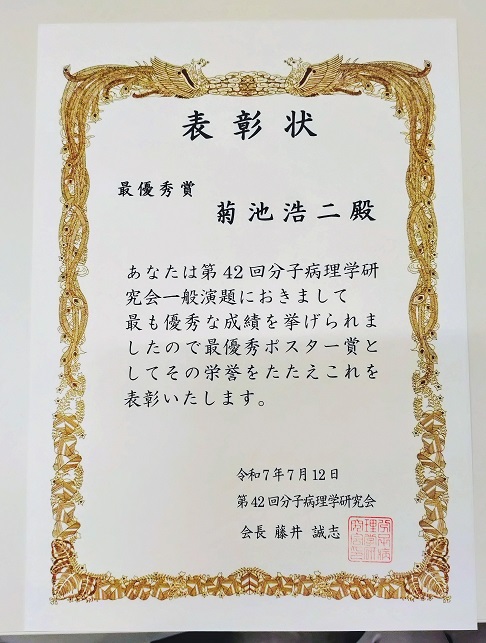 表彰状
最優秀賞
菊池浩二殿
あなたは第42回分子病理学研
究会一般演題におきまして
最も優秀な成績を挙げられま
したので最優秀ポスター賞と
してその栄誉をたたえこれを
表彰いたします。
令和7年7月12日
第42回分子病理学研究会
会長 藤井 誠志